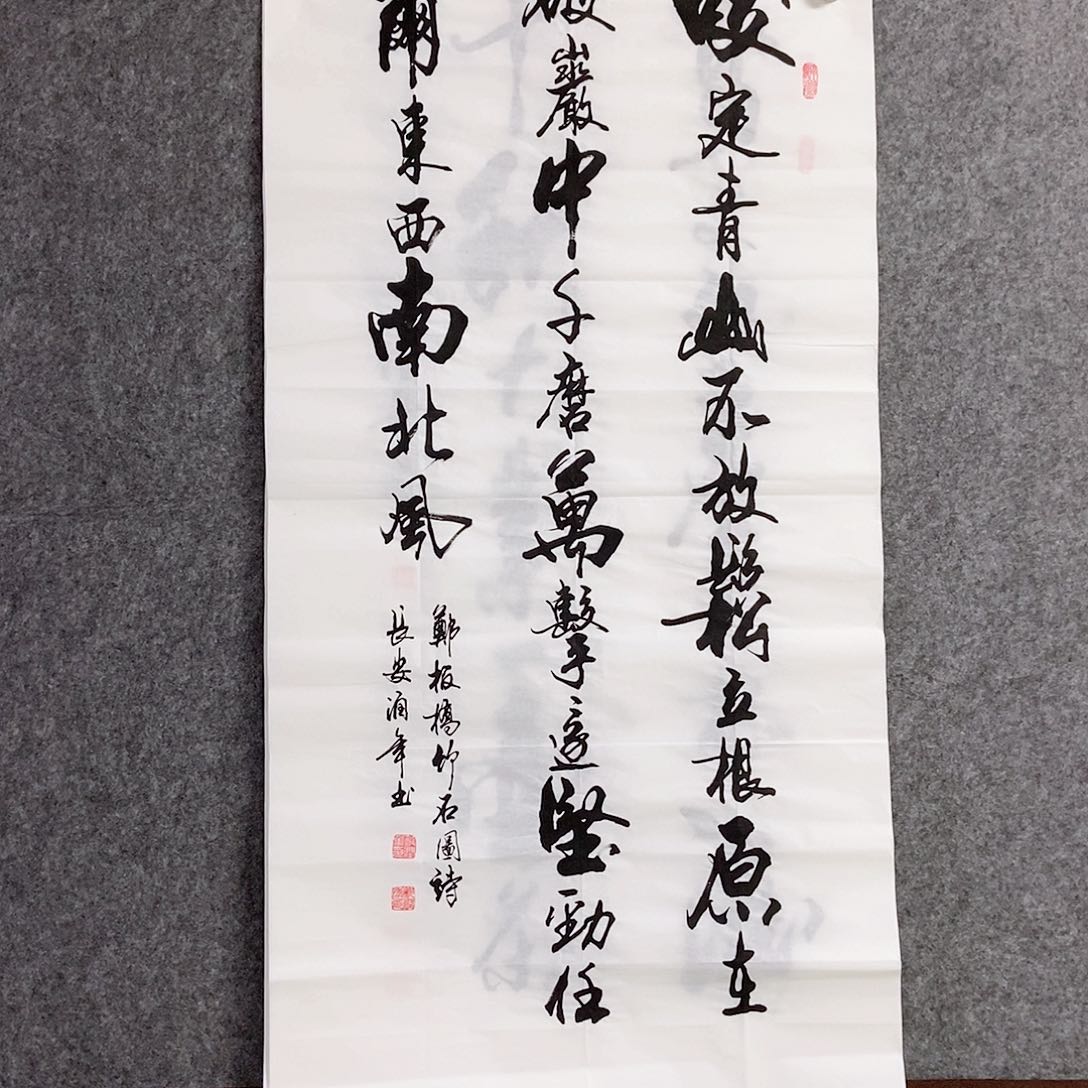 咬定青山不放鬆立根原在
破巖中千磨萬擊還堅勁任
爾東西南北風
鄭板橋竹石圖詩
長安涌年書